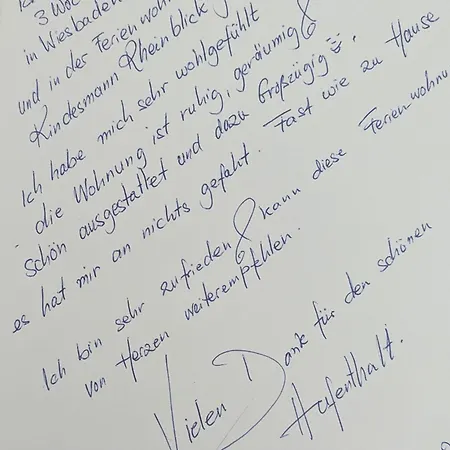 3 Woc
in Wiesbaden
und in der Ferienwohn
Kindesmann Rheinblick g
Ich habe mich sehr wohlgefühlt
die Wohnung ist ruhig, geräumig &
schön ausgestattet und dazu großzügig.
es hat mir an nichts gefehlt. Fast wie zu Hause
Ich bin sehr zufrieden & kann diese Ferienwohnu
von Herzen weiterempfehlen.
Vielen Dank für den schönen
Aufenthalt.